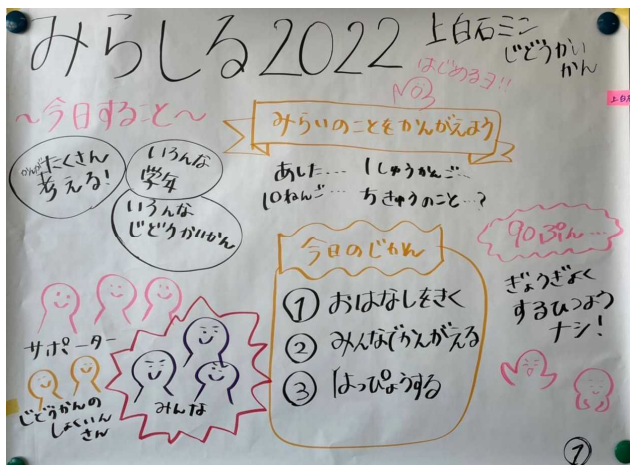 みらしる2022
上白石ミン
じどうかい
かん
はじめるヨ!!
No3
~今日すること~
みらいのことをかんがえよう
たくさん
考える!
いろんな
学年
いろんな
じどうかいかん
あした… 1しゅうかんご…
10ねんご… ちきゅうのこと…?
今日のじかん
① おはなしをきく
② みんなでかんがえる
③ はっぴょうする
90ぷん…
ぎょうぎよく
するひつよう
ナシ!
サポーター
じどうかんの
しょくいん
さん
みんな
①